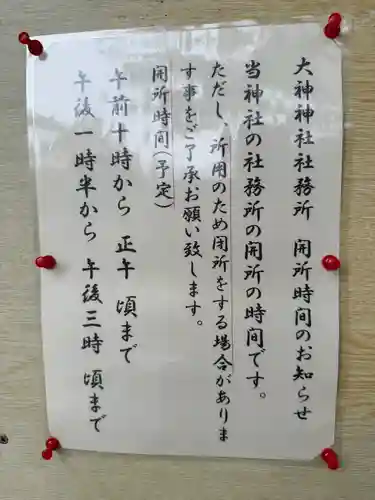 大神神社社務所 開所時間のお知らせ
当神社の社務所の開所の時間です。
ただし、所用のため閉所をする場合がありま
す事をご了承お願い致します。
開所時間(予定)
午前十時から 正午 頃まで
午後一時半から 午後三時 頃まで